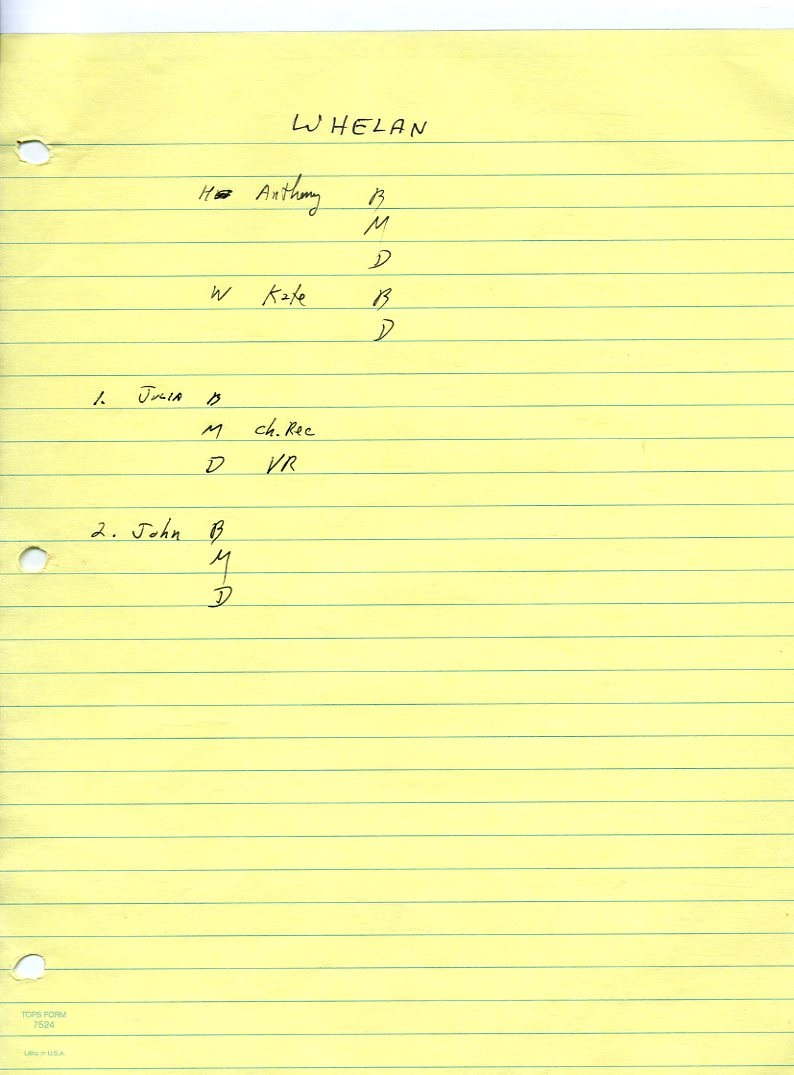 WHELAN
H Anthony B
M
D
W Kate B
D
1. JULIA B
M ch. Rec
D VR
2. John B
M
D
TOPS FORM
7524
Litho in U.S.A.